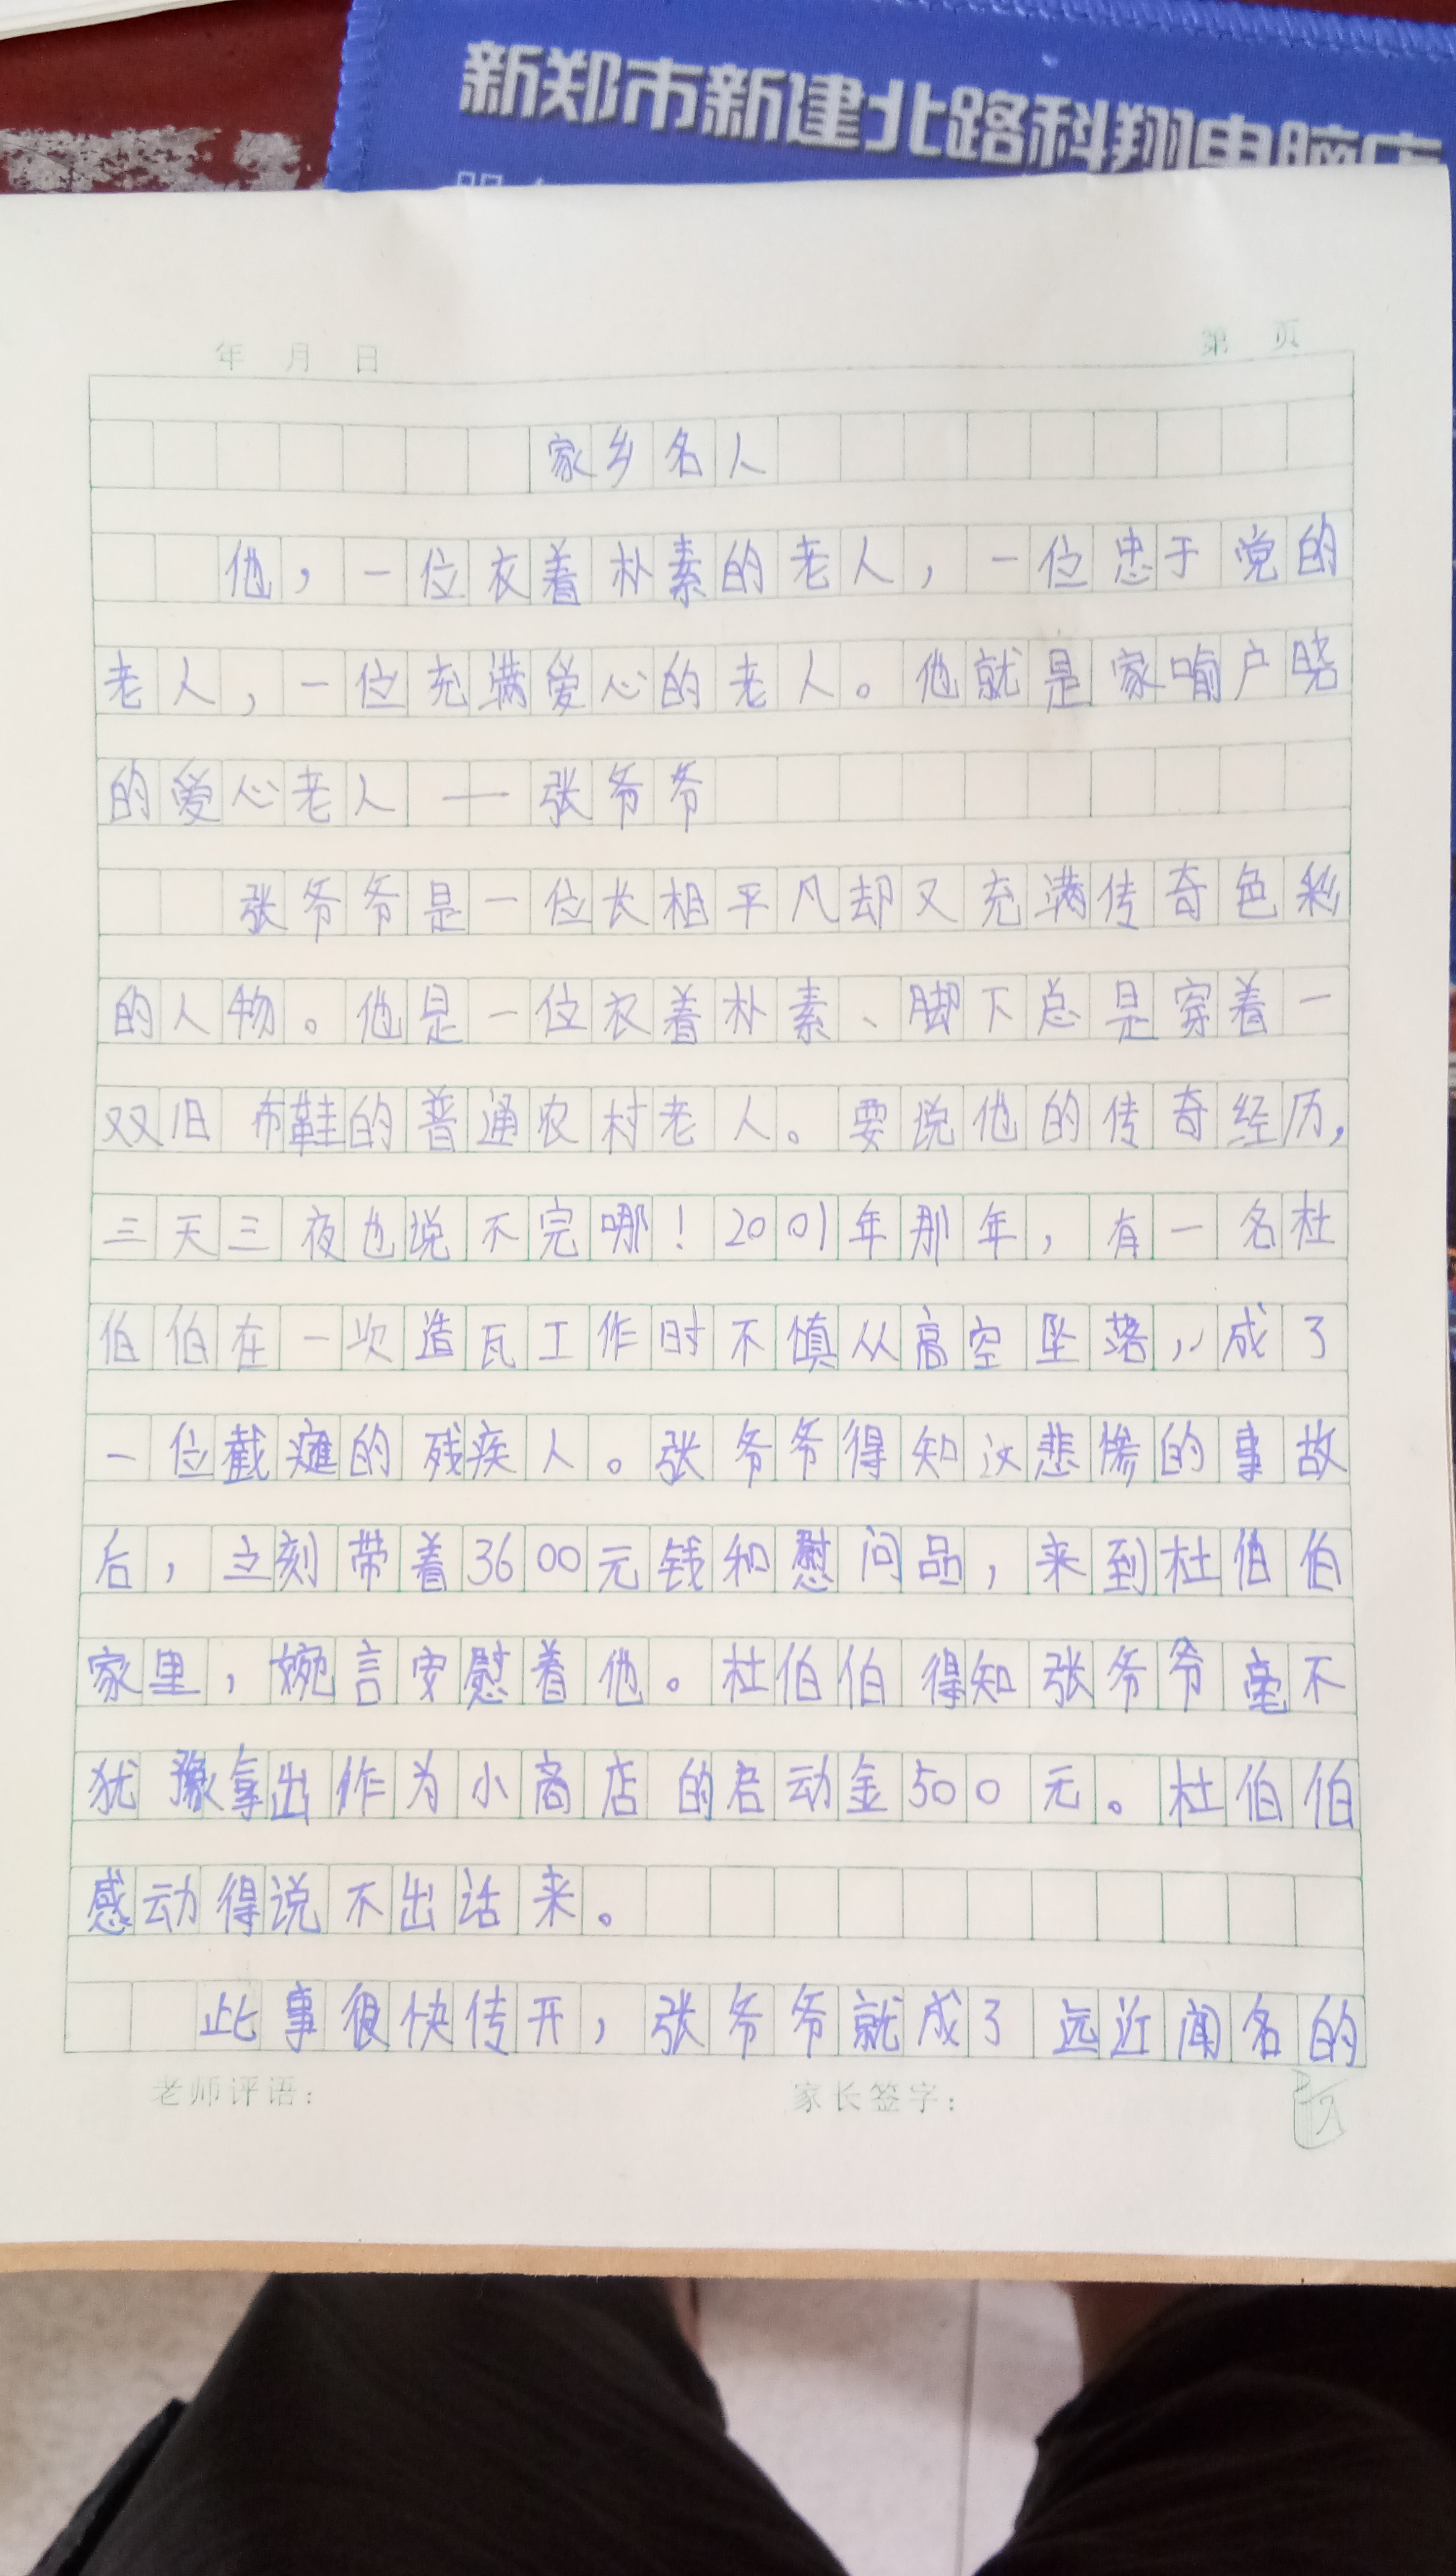 新郑市新建北路科翔电脑店
年 月 日
第 页
家乡名人
他，一位衣着朴素的老人，一位忠于党的
老人，一位充满爱心的老人。他就是家喻户晓
的爱心老人——张爷爷
张爷爷是一位长相平凡却又充满传奇色彩
的人物。他是一位衣着朴素、脚下总是穿着一
双旧布鞋的普通农村老人。要说他的传奇经历，
三天三夜也说不完哪！2001年那年，有一名杜
伯伯在一次造瓦工作时不慎从高空坠落，成了
一位截瘫的残疾人。张爷爷得知这悲惨的事故
后，立刻带着3600元钱和慰问品，来到杜伯伯
家里，婉言安慰着他。杜伯伯得知张爷爷毫不
犹豫拿出作为小商店的启动金500元。杜伯伯
感动得说不出话来。
此事很快传开，张爷爷就成了远近闻名的
老师评语：
家长签字：